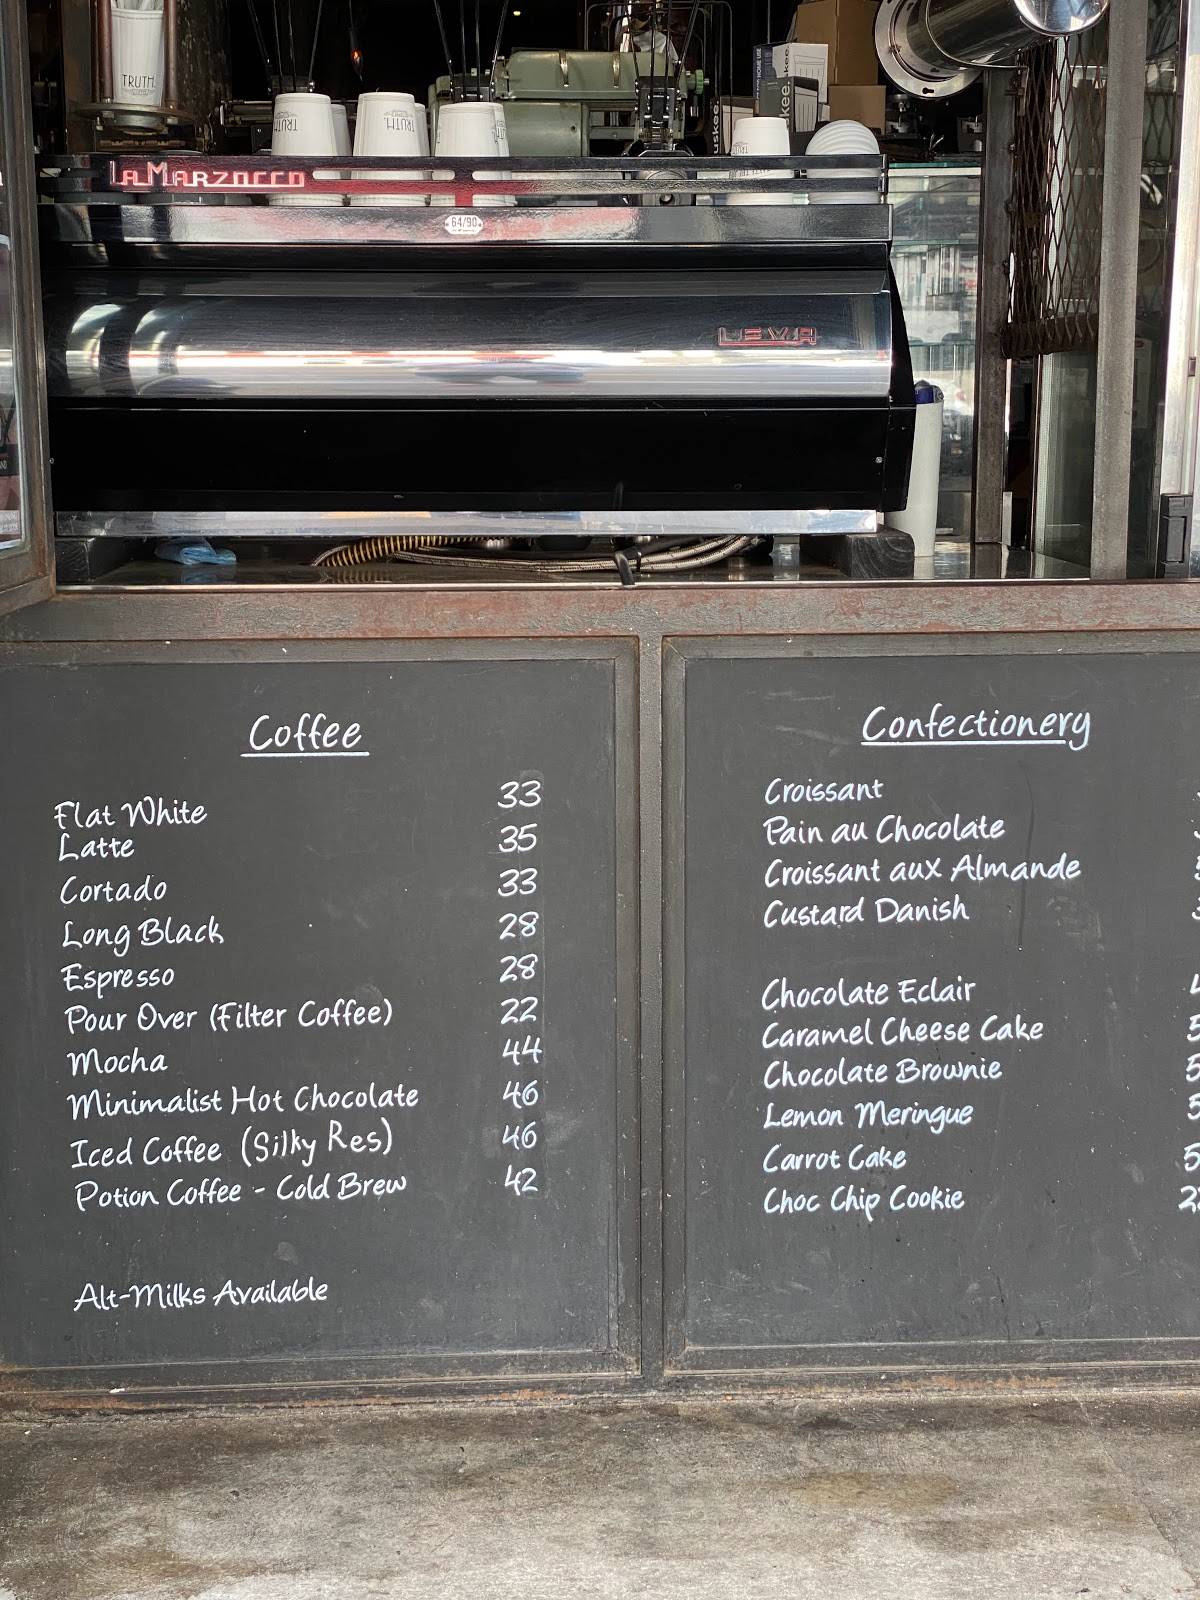 TRUTH.
TRUTH.
TRUTH.
TRUTH.
La Marzocco
64/90
LEVA
Coffee
Flat White 33
Latte 35
Cortado 33
Long Black 28
Espresso 28
Pour Over (Filter Coffee) 22
Mocha 44
Minimalist Hot Chocolate 46
Iced Coffee (Silky Res) 46
Potion Coffee - Cold Brew 42
Alt-Milks Available
Confectionery
Croissant
Pain au Chocolate
Croissant aux Almande
Custard Danish
Chocolate Eclair
Caramel Cheese Cake
Chocolate Brownie
Lemon Meringue
Carrot Cake
Choc Chip Cookie